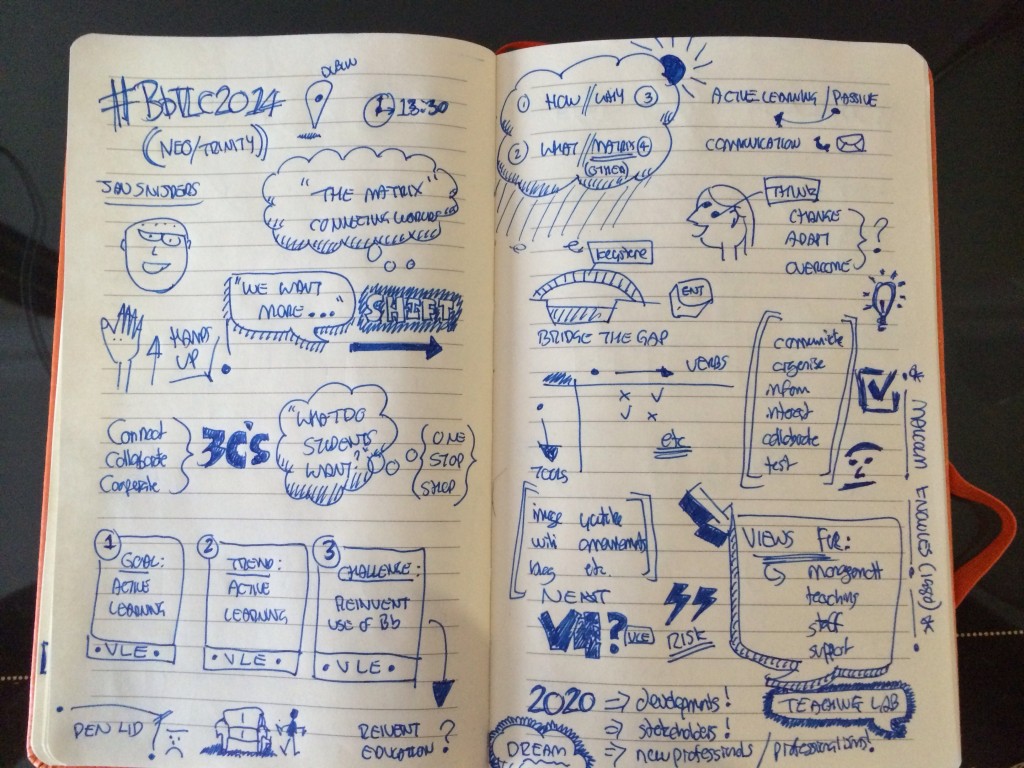 #BbTLC2014
DUBLIN
1 13:30
(NEO/TRINITY)
JAN SNIJDERS
"THE MATRIX"
CONNECTING
"WE WANT
MORE..."
SHIFT
HANDS
UP
Connect
Collaborate
Cooperate
3C'S
"WHAT DO
STUDENTS
WANT?"
ONE
STOP
SHOP
1
GOAL:
ACTIVE
LEARNING
•VLE•
2
TREND:
ACTIVE
LEARNING
•VLE•
3
CHALLENGE:
REINVENT
USE OF Bb
•VLE•
PEN LID
REINVENT
EDUCATION?
1 HOW//WHY 3
2 WHAT//MATRIX 4
(OTHER)
ACTIVE LEARNING/PASSIVE
COMMUNICATION
THINK
CHANGE
ADAPT
OVERCOME
?
keystone
ENT
BRIDGE THE GAP
VERBS
x v
v x
etc
TOOLS
communicate
organise
inform
interact
collaborate
test
* MALCOLM KNOWLES (1950) *
image youtube
wiki announcements
blog etc.
NEXT
V4?
VLE
RISK
VIEWS FOR:
management
teaching
staff
support
TEACHING LAB
2020 => developments!
=> stakeholders!
DREAM => new professionals/professionalism!